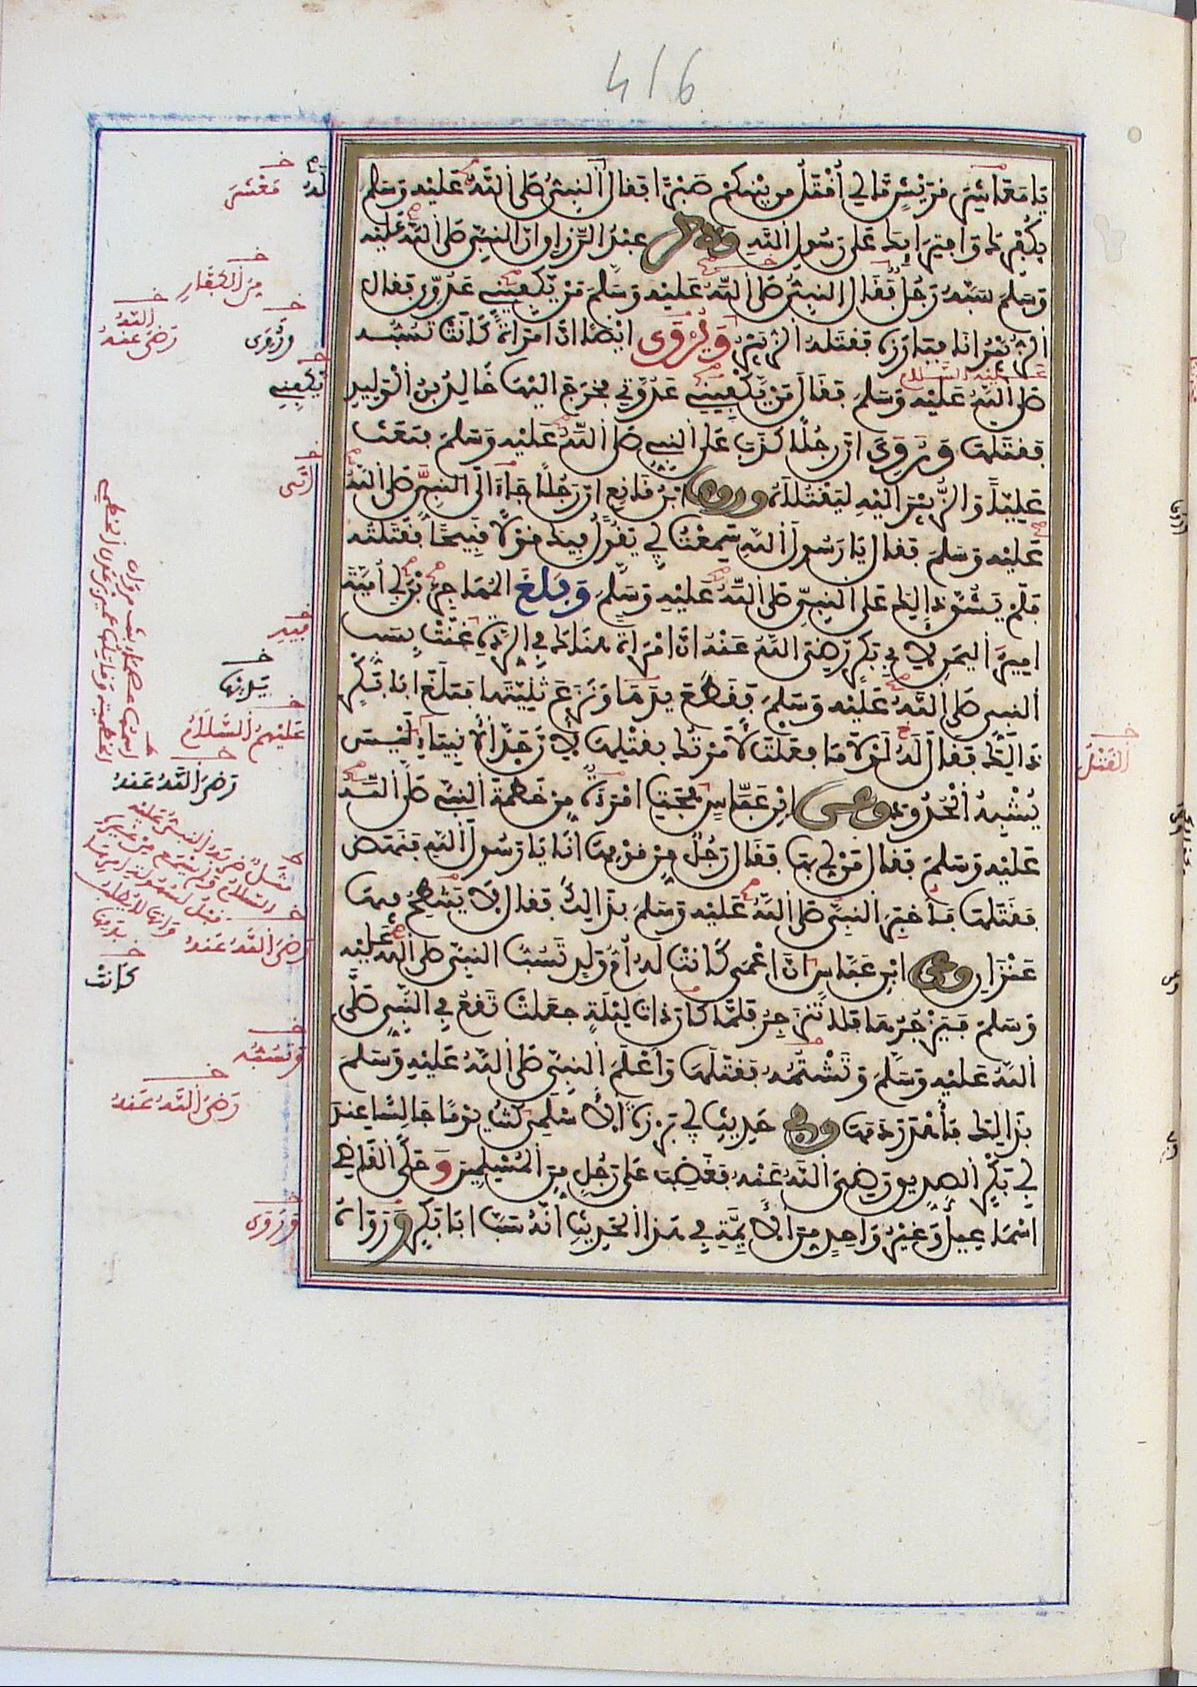 416
يَا مَعَاشِرَ قُرَيْشٍ مَا لِي أُقْتَلُ مِن بَيْنِكُمْ صَبْرًا فقال النبي صلى الله عليه وسلم
بكفرك وافترائك على رسول الله وذكر عبد الرزاق ان النبي صلى الله عليه
وسلم سبه رجل فقال النبي صلى الله عليه وسلم من يكفيني عدوي فقال
الزبير انا فبارزه فقتله الزبير ويروى ايضا ان امراة كانت تسبه
عليه السلام
صلى الله عليه وسلم فقال من يكفيني عدوتي فخرج اليها خالد بن الوليد
فقتلها وروي ان رجلا كذب على النبي صلى الله عليه وسلم فبعث
عليا والزبير اليه ليقتلاه وروى ابن قانع ان رجلا جاء الى النبي صلى الله
عليه وسلم فقال يا رسول الله سمعت ابي يقول فيك قولا قبيحا فقتلته
فلم يشق ذلك على النبي صلى الله عليه وسلم وبلغ المهاجر بن ابي امية
امير اليمن لابي بكر رضي الله عنه ان امراة هناك في الردة غنت بسب
النبي صلى الله عليه وسلم فقطع يدها ونزع ثنيتها فبلغ ابا بكر
ذلك فقال له لولا ما فعلت لامرتك بقتلها لان حد الانبياء ليس
يشبه الحدود وعن ابن عباس هجت امراة من خطمة النبي صلى الله
عليه وسلم فقال من لي بها فقال رجل من قومها انا يا رسول الله فنهض
فقتلها فاخبر النبي صلى الله عليه وسلم بذلك فقال لا ينتطح فيها
عنزان وعن ابن عباس ان اعمى كانت له ام ولد تسب النبي صلى الله عليه
وسلم فيزجرها فلا تنزجر فلما كان ذات ليلة جعلت تقع في النبي صلى
الله عليه وسلم وتشتمه فقتلها واعلم النبي صلى الله عليه وسلم
بذلك فاهدر دمها وفي حديث ابي برزة الاسلمي كنت يوما جالسا عند
ابي بكر الصديق رضي الله عنه فغضب على رجل من المسلمين وحكى القاضي
اسماعيل وغير واحد من الائمة في هذا الحديث انه سب ابا بكر ورواه
له
معشر
من الكفار
رضي الله عنه
وروى
يكفيني
انى
فيه
ثنيتها
عليهم السلام
رضي الله عنه
القتل
رضي الله عنه
كانت
وتسبه
رضي الله عنه
وروى